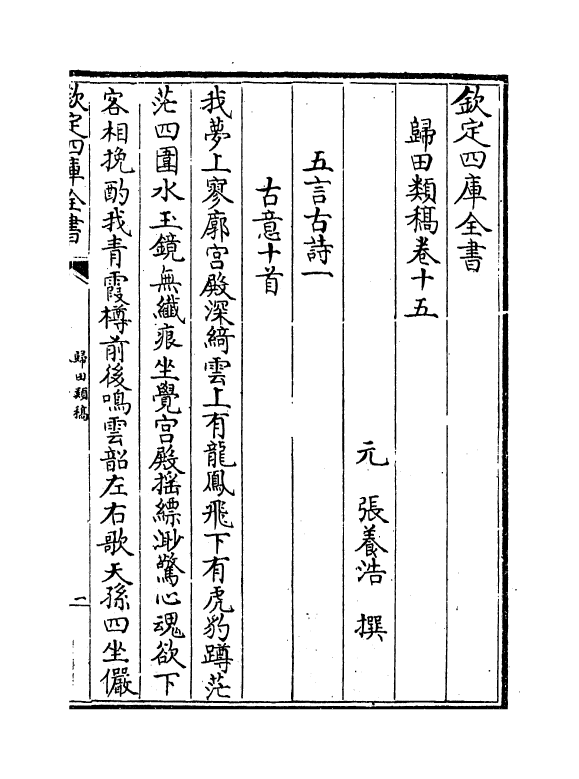 欽定四庫全書
歸田類稿卷十五
元 張養浩 撰
五言古詩一
古意十首
我夢上寥廓宫殿深綺雲上有龍鳳飛下有虎豹蹲茫
茫四圍水玉鏡無纖痕坐覺宫殿揺縹渺驚心魂欲下
客相挽酌我青霞樽前後鳴雲韶左右歌天孫四坐儼
欽定四庫全書
歸田類稿